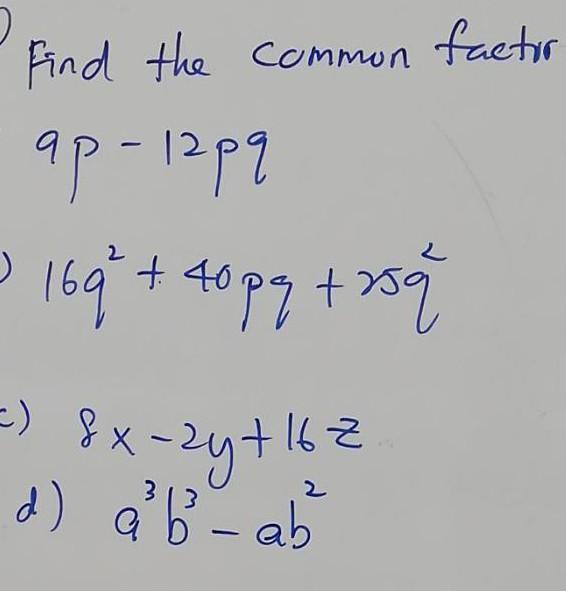 ) Find the common factor
9p - 12pq
) 16q² + 40pq + 25q²
c) 8x - 2y + 16z
d) a³b³ - ab²